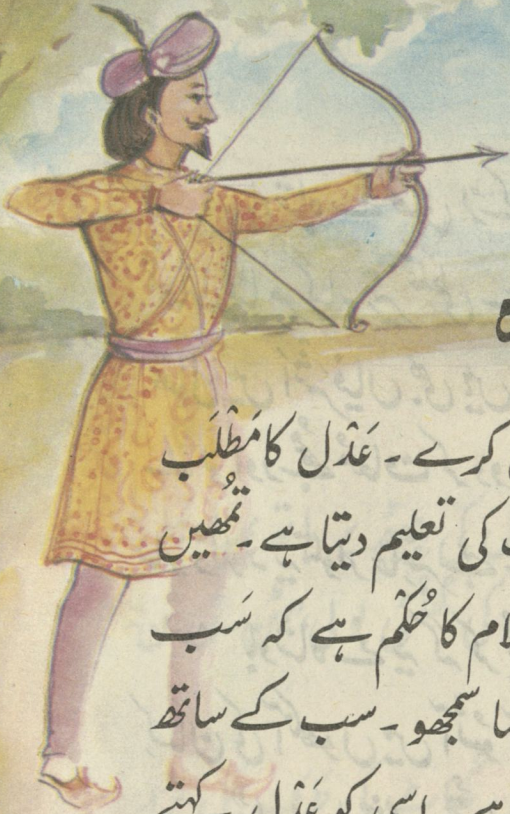 کرے ۔ عَدْل کا مَطْلَب
کی تعلیم دیتا ہے ۔ تُمھیں
کا حُکْم ہے کہ سَب
سمجھو ۔ سب کے ساتھ
اسی کو عَدْل کہتے